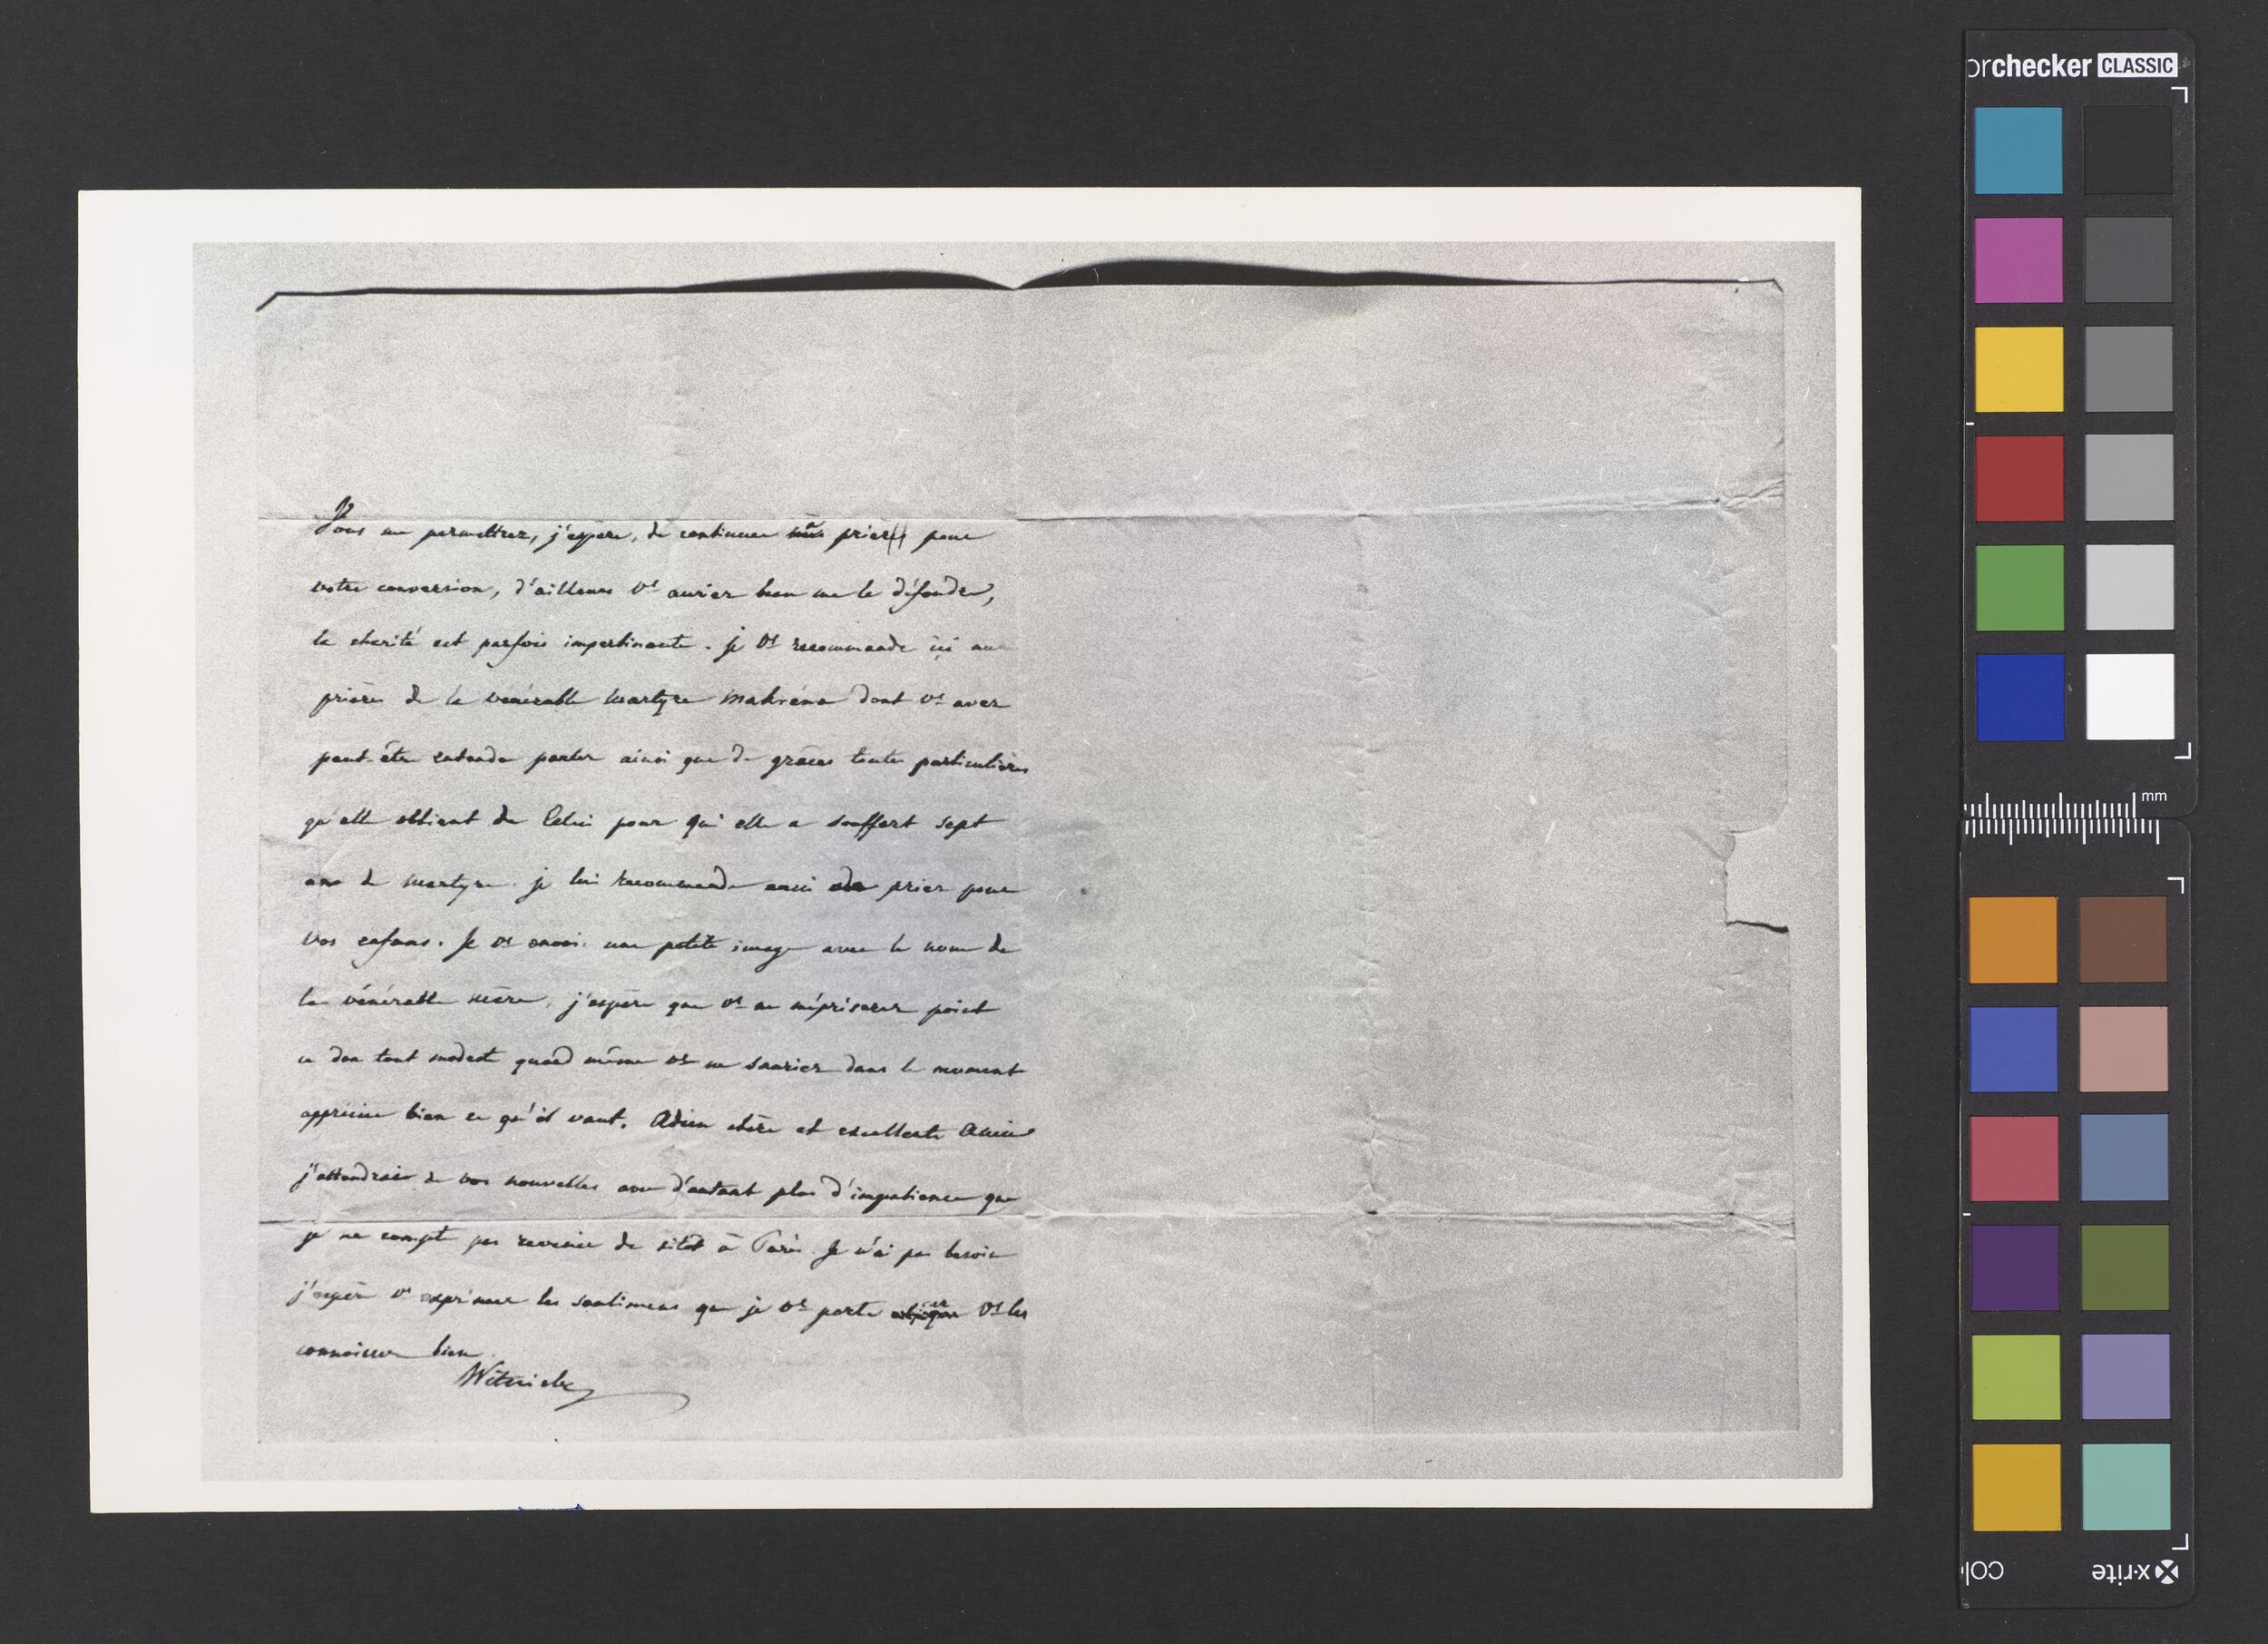 Vous me permettrez, j'espère, de continuer ma prière pour
votre conversion, d'ailleurs vs auriez beau me le défendre,
la charité est parfois impertinente. je vs recommande içi aux
prières de la vénérable martyre Makréna dont vs avez
peut-être entendu parler ainsi que de grâces toutes particulières
qu'elle obtient de Celui pour qui elle a souffert sept
ans de martyre. je lui recommande aussi de prier pour
vos enfans. Je vs envoie une petite image avec le nom de
la vénérable mère, j'espère que vs ne mépriserez point
ce don tout modeste quand même vs ne sauriez dans le moment
apprécier bien ce qu'il vaut. Adieu chère et excellente Amie
j'attendrai de vos nouvelles avec d'autant plus d'impatience que
je ne compte pas revenir de sitôt à Paris. Je n'ai pas besoin
j'espère vs exprimer les sentimens que je vs porte car vs les
connaissez bien.
Witwicki
orchecker CLASSIC
mm
x-rite
col